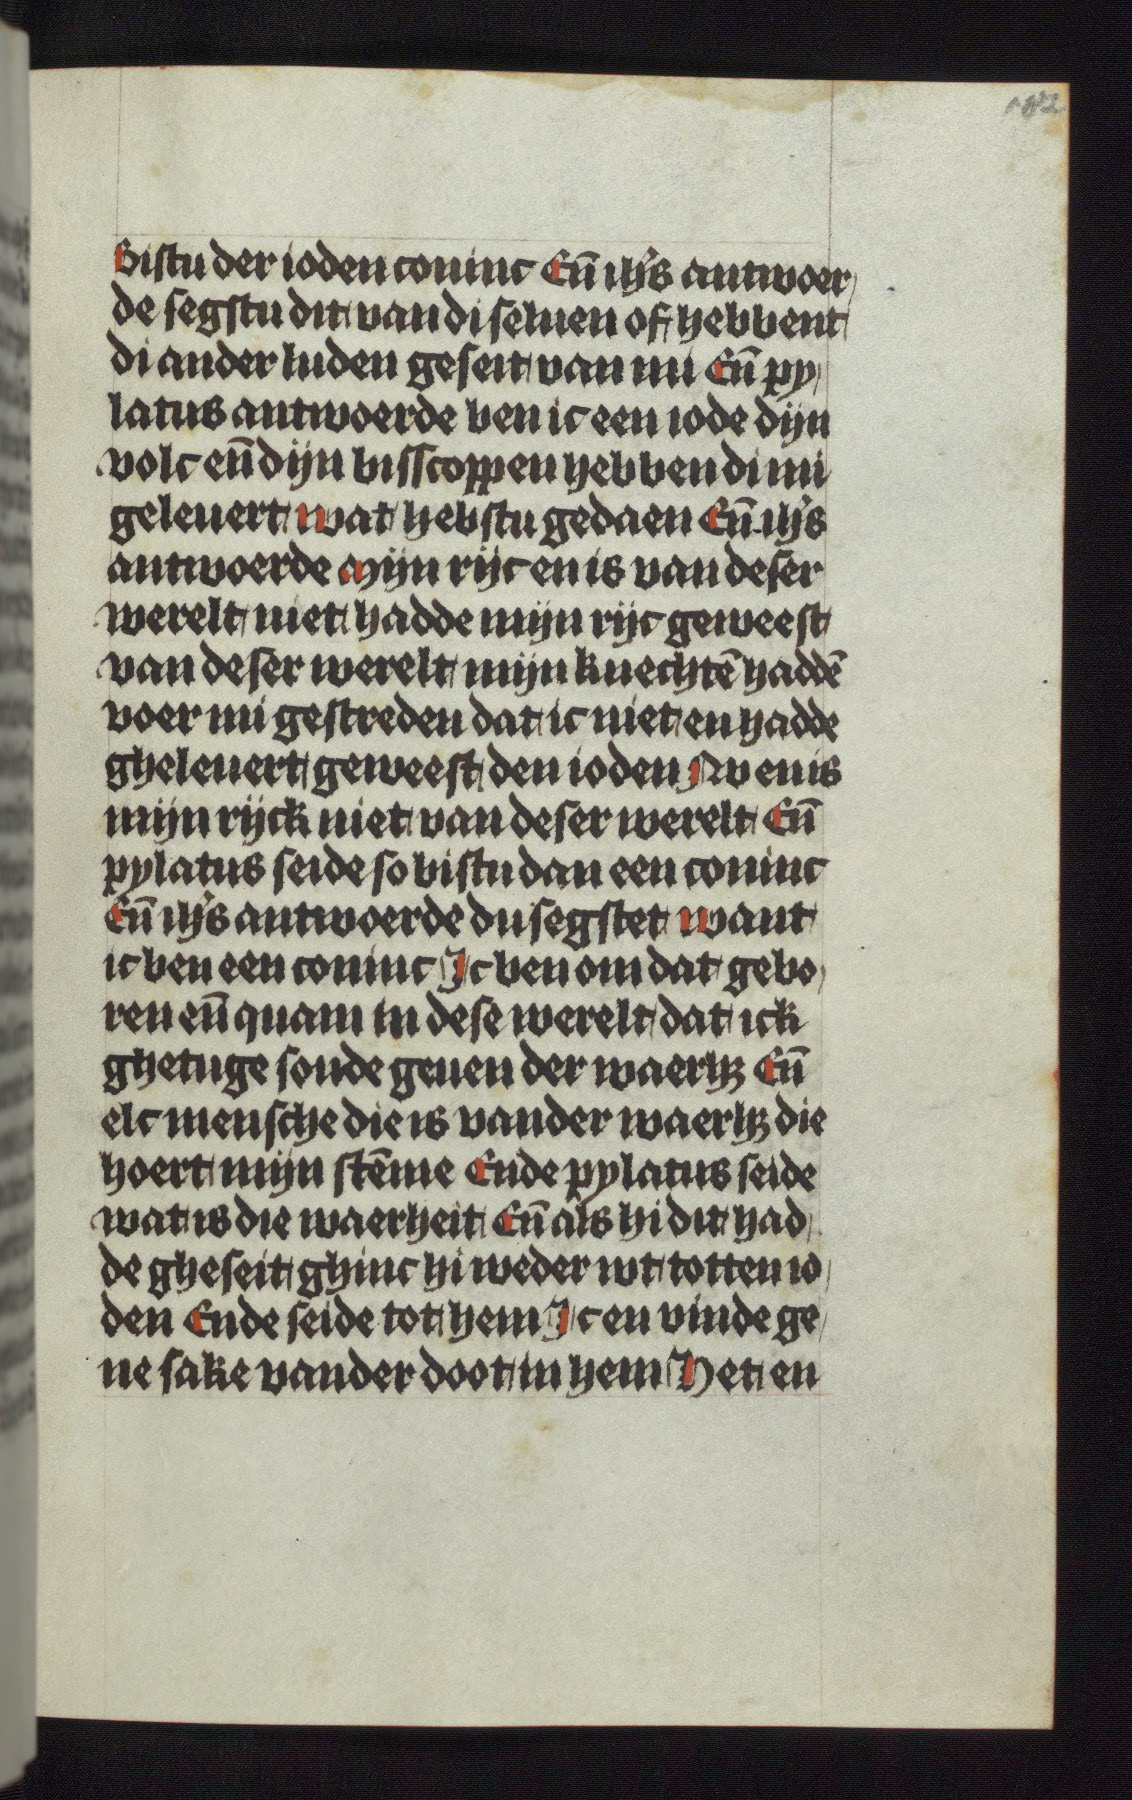 Bistu der ioden coninc Eñ ihs̄ antwoer
de segstu dit van di seluen of hebbent
di ander luden geseit van mi Eñ py
latus antwoerde ben ic een iode dijn
volc eñ dijn bisscoppen hebben di mi
geleuert wat hebstu gedaen Eñ ihs̄
antwoerde Mijn rijc en is van deser
werelt niet hadde mijn rijc geweest
van deser werelt mijn knechtē haddē
voer mi gestreden dat ic niet en hadde
gheleuert geweest den ioden Nv en is
mijn rijck niet van deser werelt Eñ
pylatus seide so bistu dan een coninc
Eñ ihs̄ antwoerde du segstet want
ic ben een coninc Ic ben om dat gebo
ren eñ quam in dese werelt dat ick
ghetuge soude geuen der waerhꝫ Eñ
elc mensche die is vander waerhꝫ die
hoert mijn stēme Ende pylatus seide
wat is die waerheit Eñ als hi dit had
de gheseit ghinc hi weder wt totten io
den Ende seide tot hem Ic en vinde ge
ne sake vander doot in hem Het en